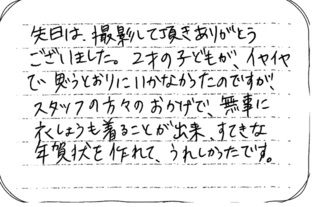 先日は、撮影して頂きありがとう
ございました。2才の子どもが、イヤイヤ
で、思うとおりにいかなかったのですが、
スタッフの方々のおかげで、無事に
衣しょうも着ることが出来、すてきな
年賀状を作れて、うれしかったです。